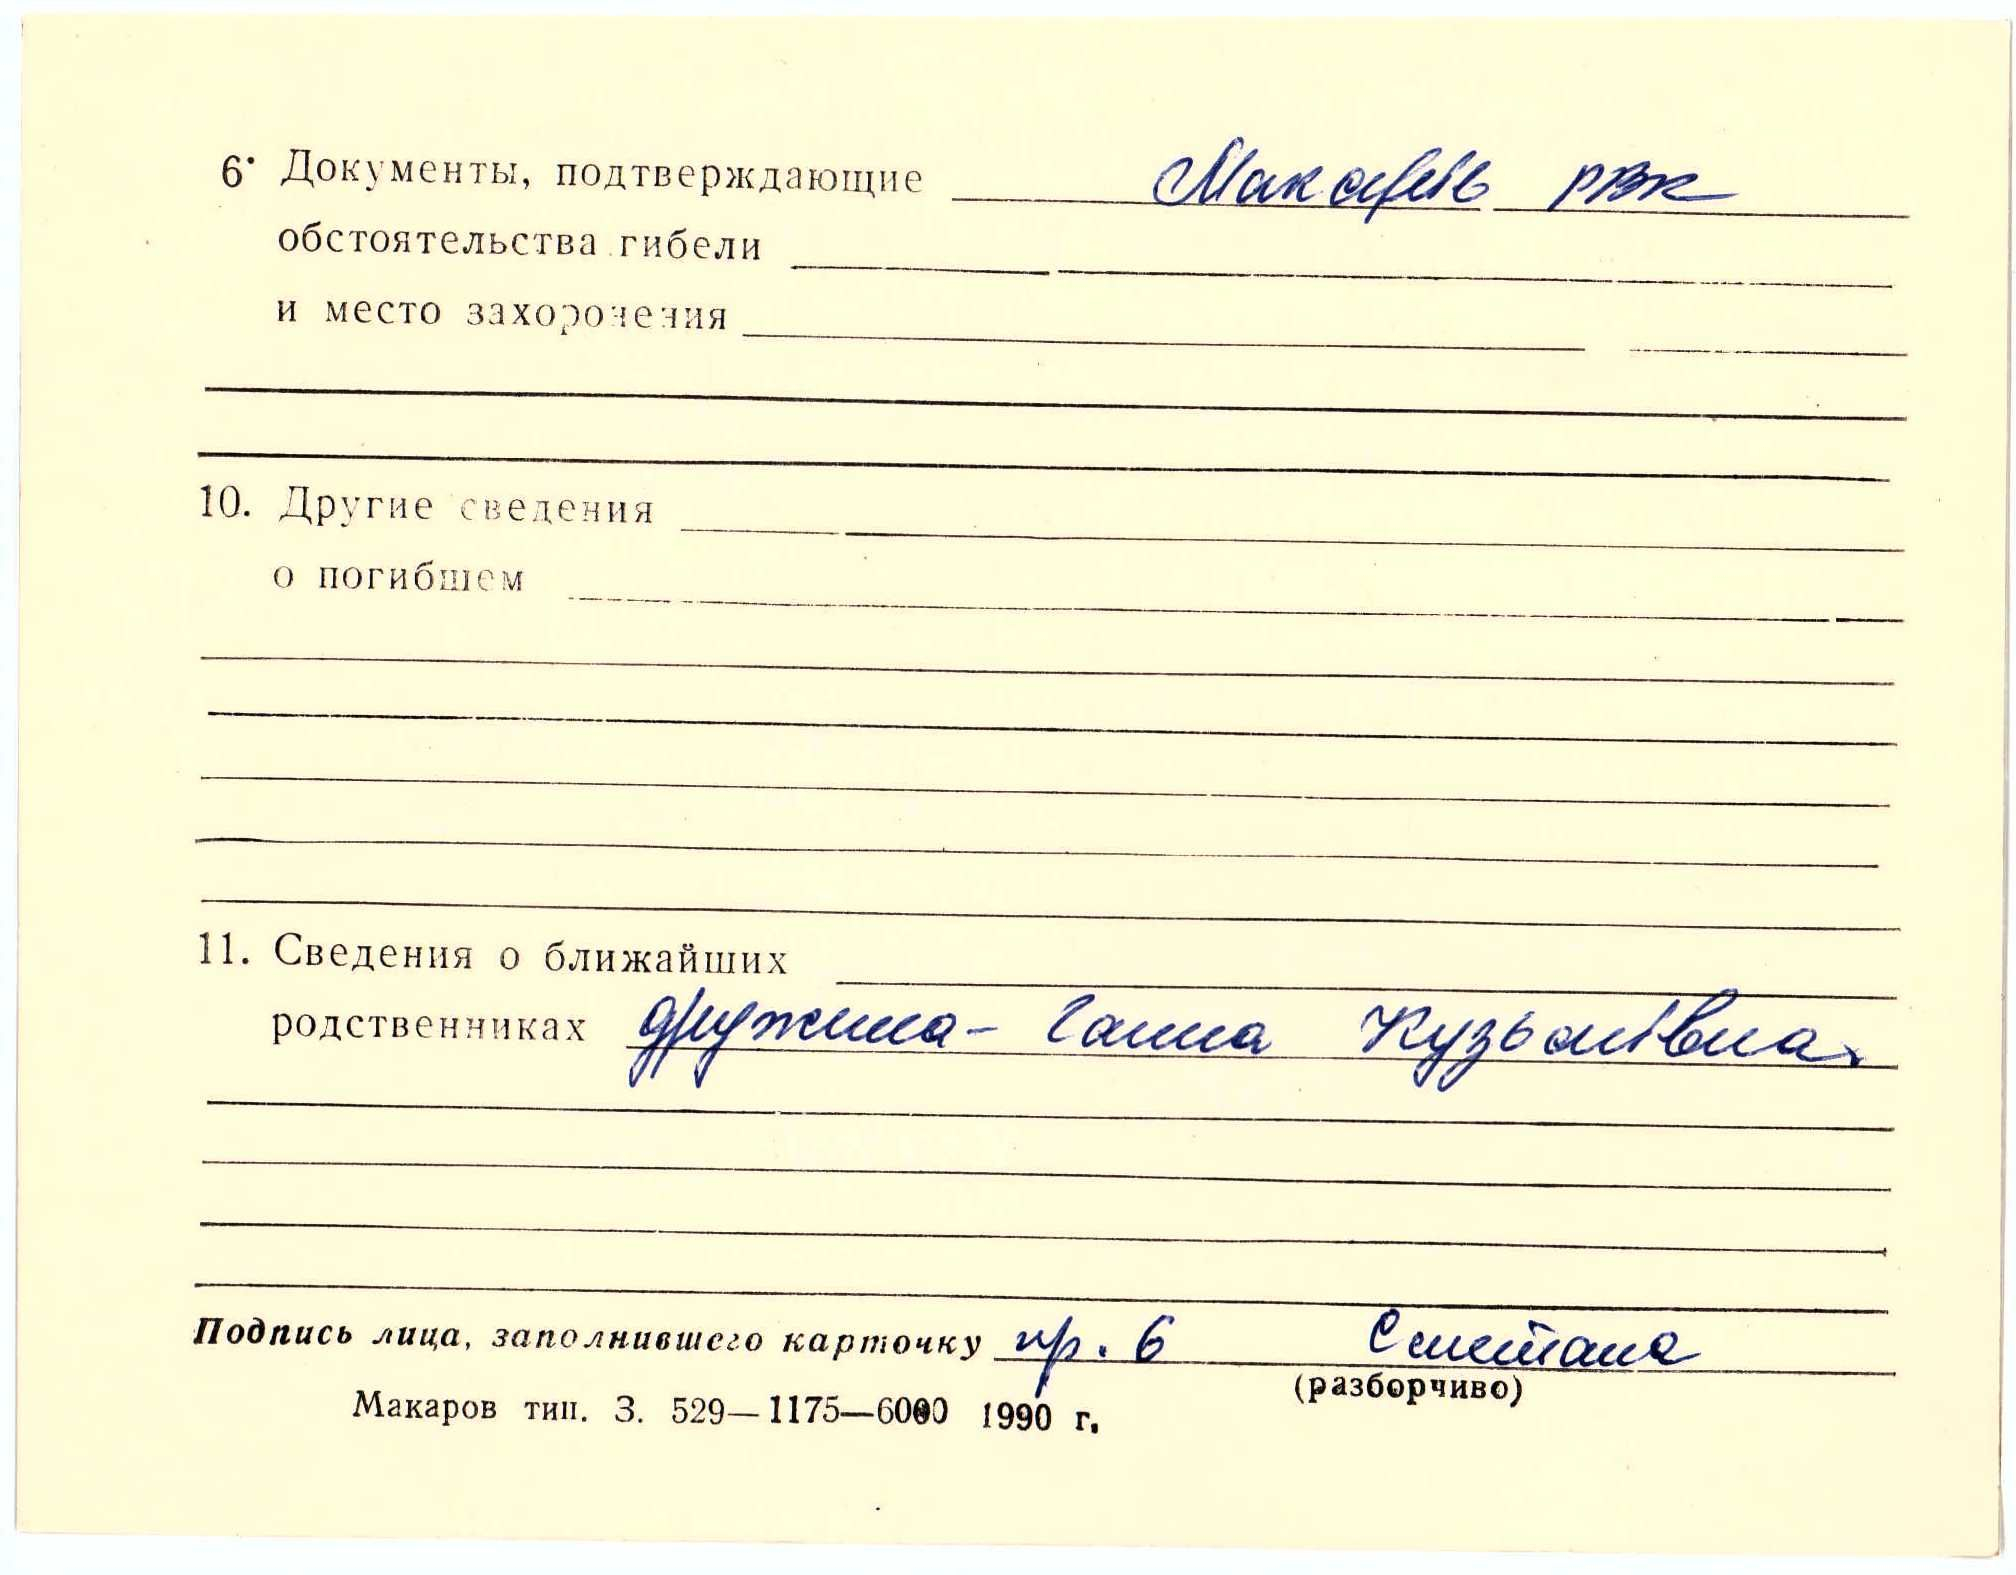 6. Документы, подтверждающие Макарів РВК
обстоятельства гибели
и место захоронения
10. Другие сведения
о погибшем
11. Сведения о ближайших
родственниках дружина - Ганна Кузьмівна.
Подпись лица, заполнившего карточку пр. 6 Сметана
(разборчиво)
Макаров тип. З. 529—1175—6000 1990 г.